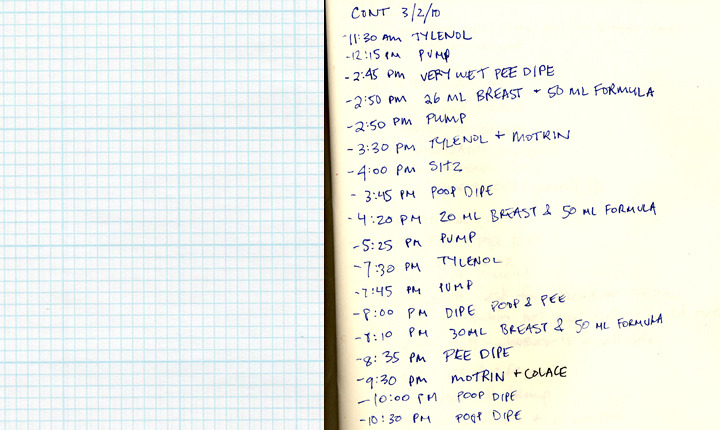 CONT 3/2/10
-11:30 AM TYLENOL
-12:15 PM PUMP
-2:45 PM VERY WET PEE DIPE
-2:50 PM 26 ML BREAST + 50 ML FORMULA
-2:50 PM PUMP
-3:30 PM TYLENOL + MOTRIN
-4:00 PM SITZ
-3:45 PM POOP DIPE
-4:20 PM 20 ML BREAST & 50 ML FORMULA
-5:25 PM PUMP
-7:30 PM TYLENOL
-7:45 PM PUMP
-8:00 PM DIPE POOP & PEE
-8:10 PM 30ML BREAST & 50 ML FORMULA
-8:35 PM PEE DIPE
-9:30 PM MOTRIN + COLACE
-10:00 PM POOP DIPE
-10:30 PM POOP DIPE